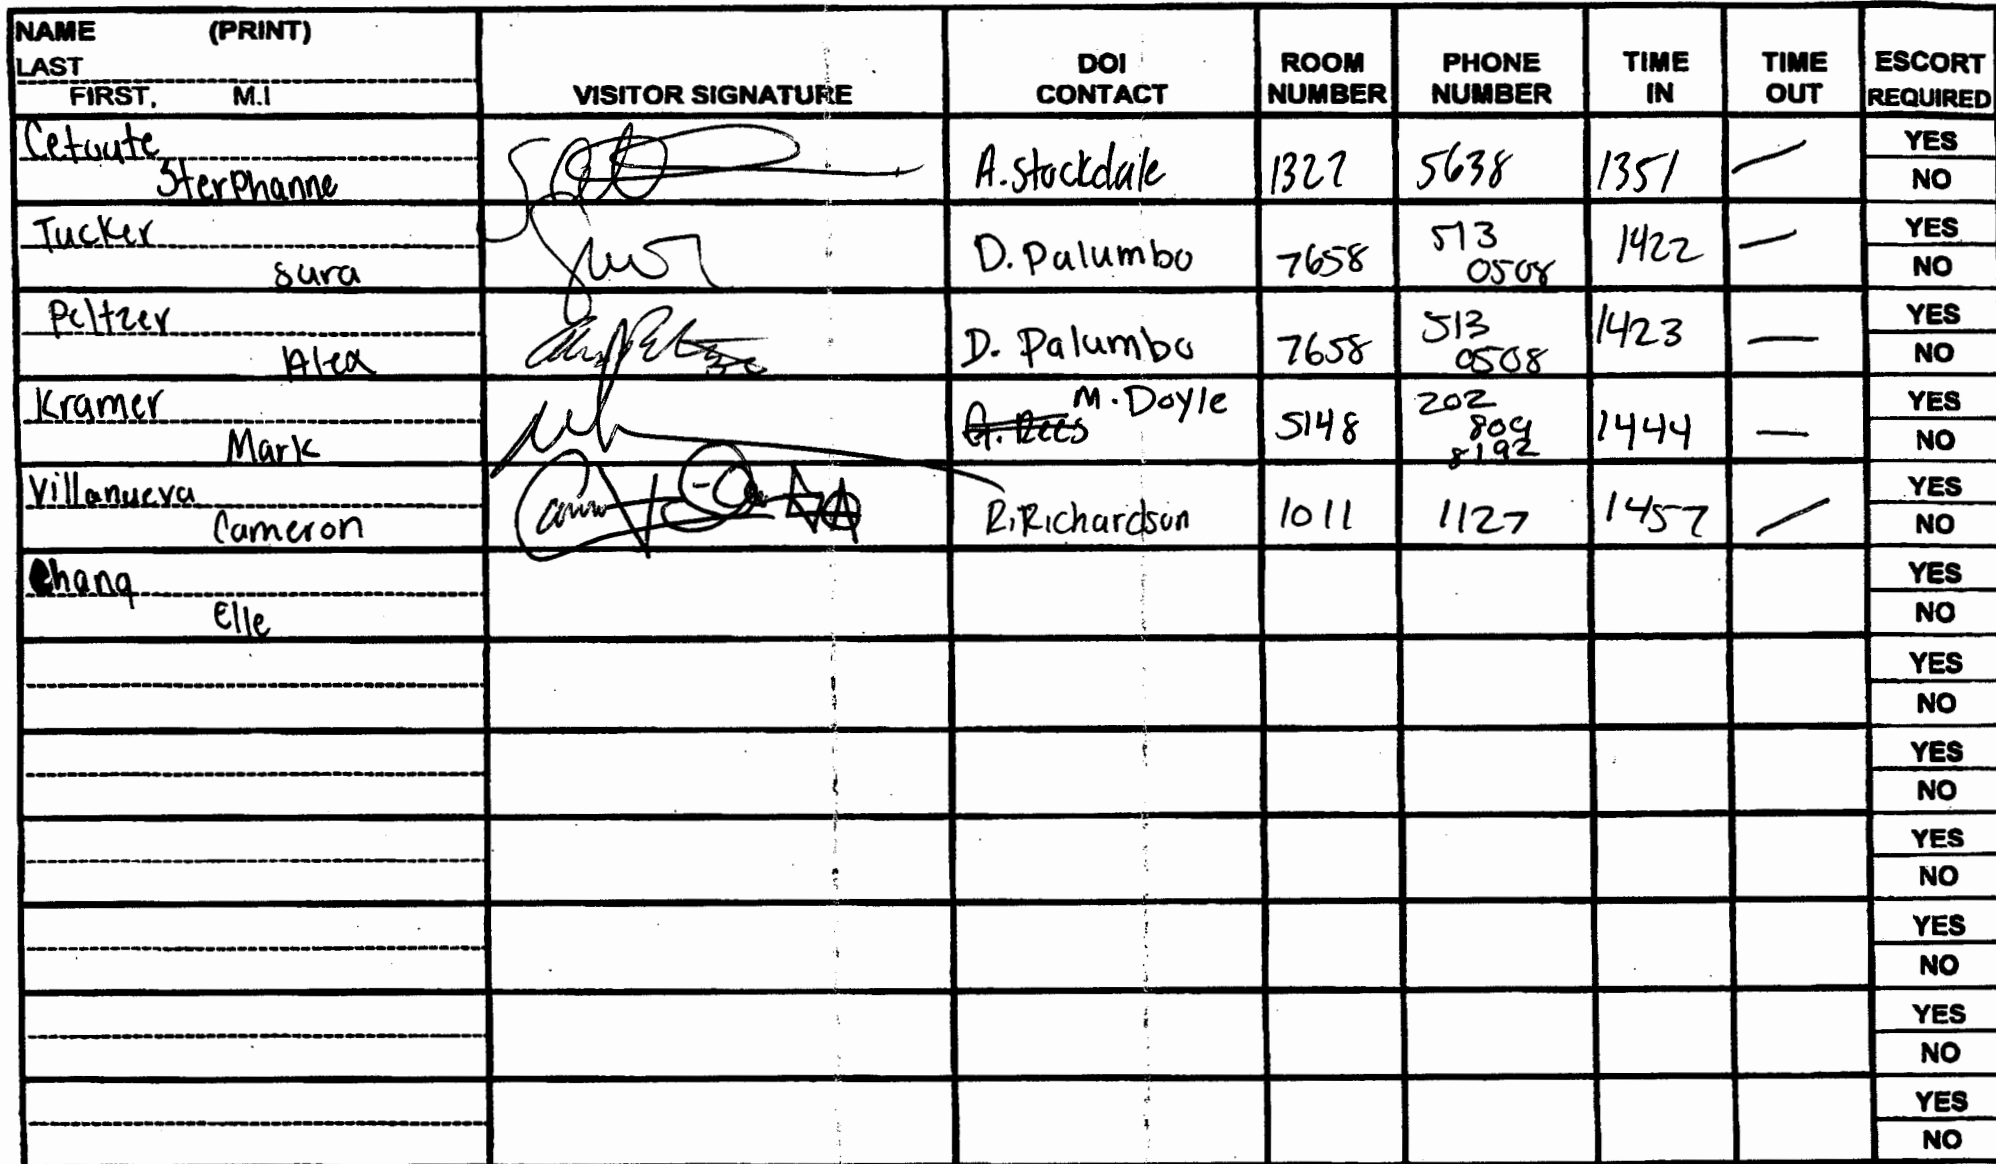 NAME (PRINT)
LAST
FIRST, M.I
VISITOR SIGNATURE
DOI CONTACT
ROOM NUMBER
PHONE NUMBER
TIME IN
TIME OUT
ESCORT REQUIRED
Cetoute
SterPhanne
A. Stockdale 1327 5638 1351 —
YES
NO
Tucker
Sara
D. Palumbo 7658 513 0508 1422 —
YES
NO
Peltzer
Alea
D. Palumbo 7658 513 0508 1423 —
YES
NO
Kramer
Mark
M. Doyle 5148 202 809 8192 1444 —
YES
NO
Villanueva
Cameron
R. Richardson 1011 1127 1457 —
YES
NO
Chang
Elle
YES
NO
YES
NO
YES
NO
YES
NO
YES
NO
YES
NO
YES
NO